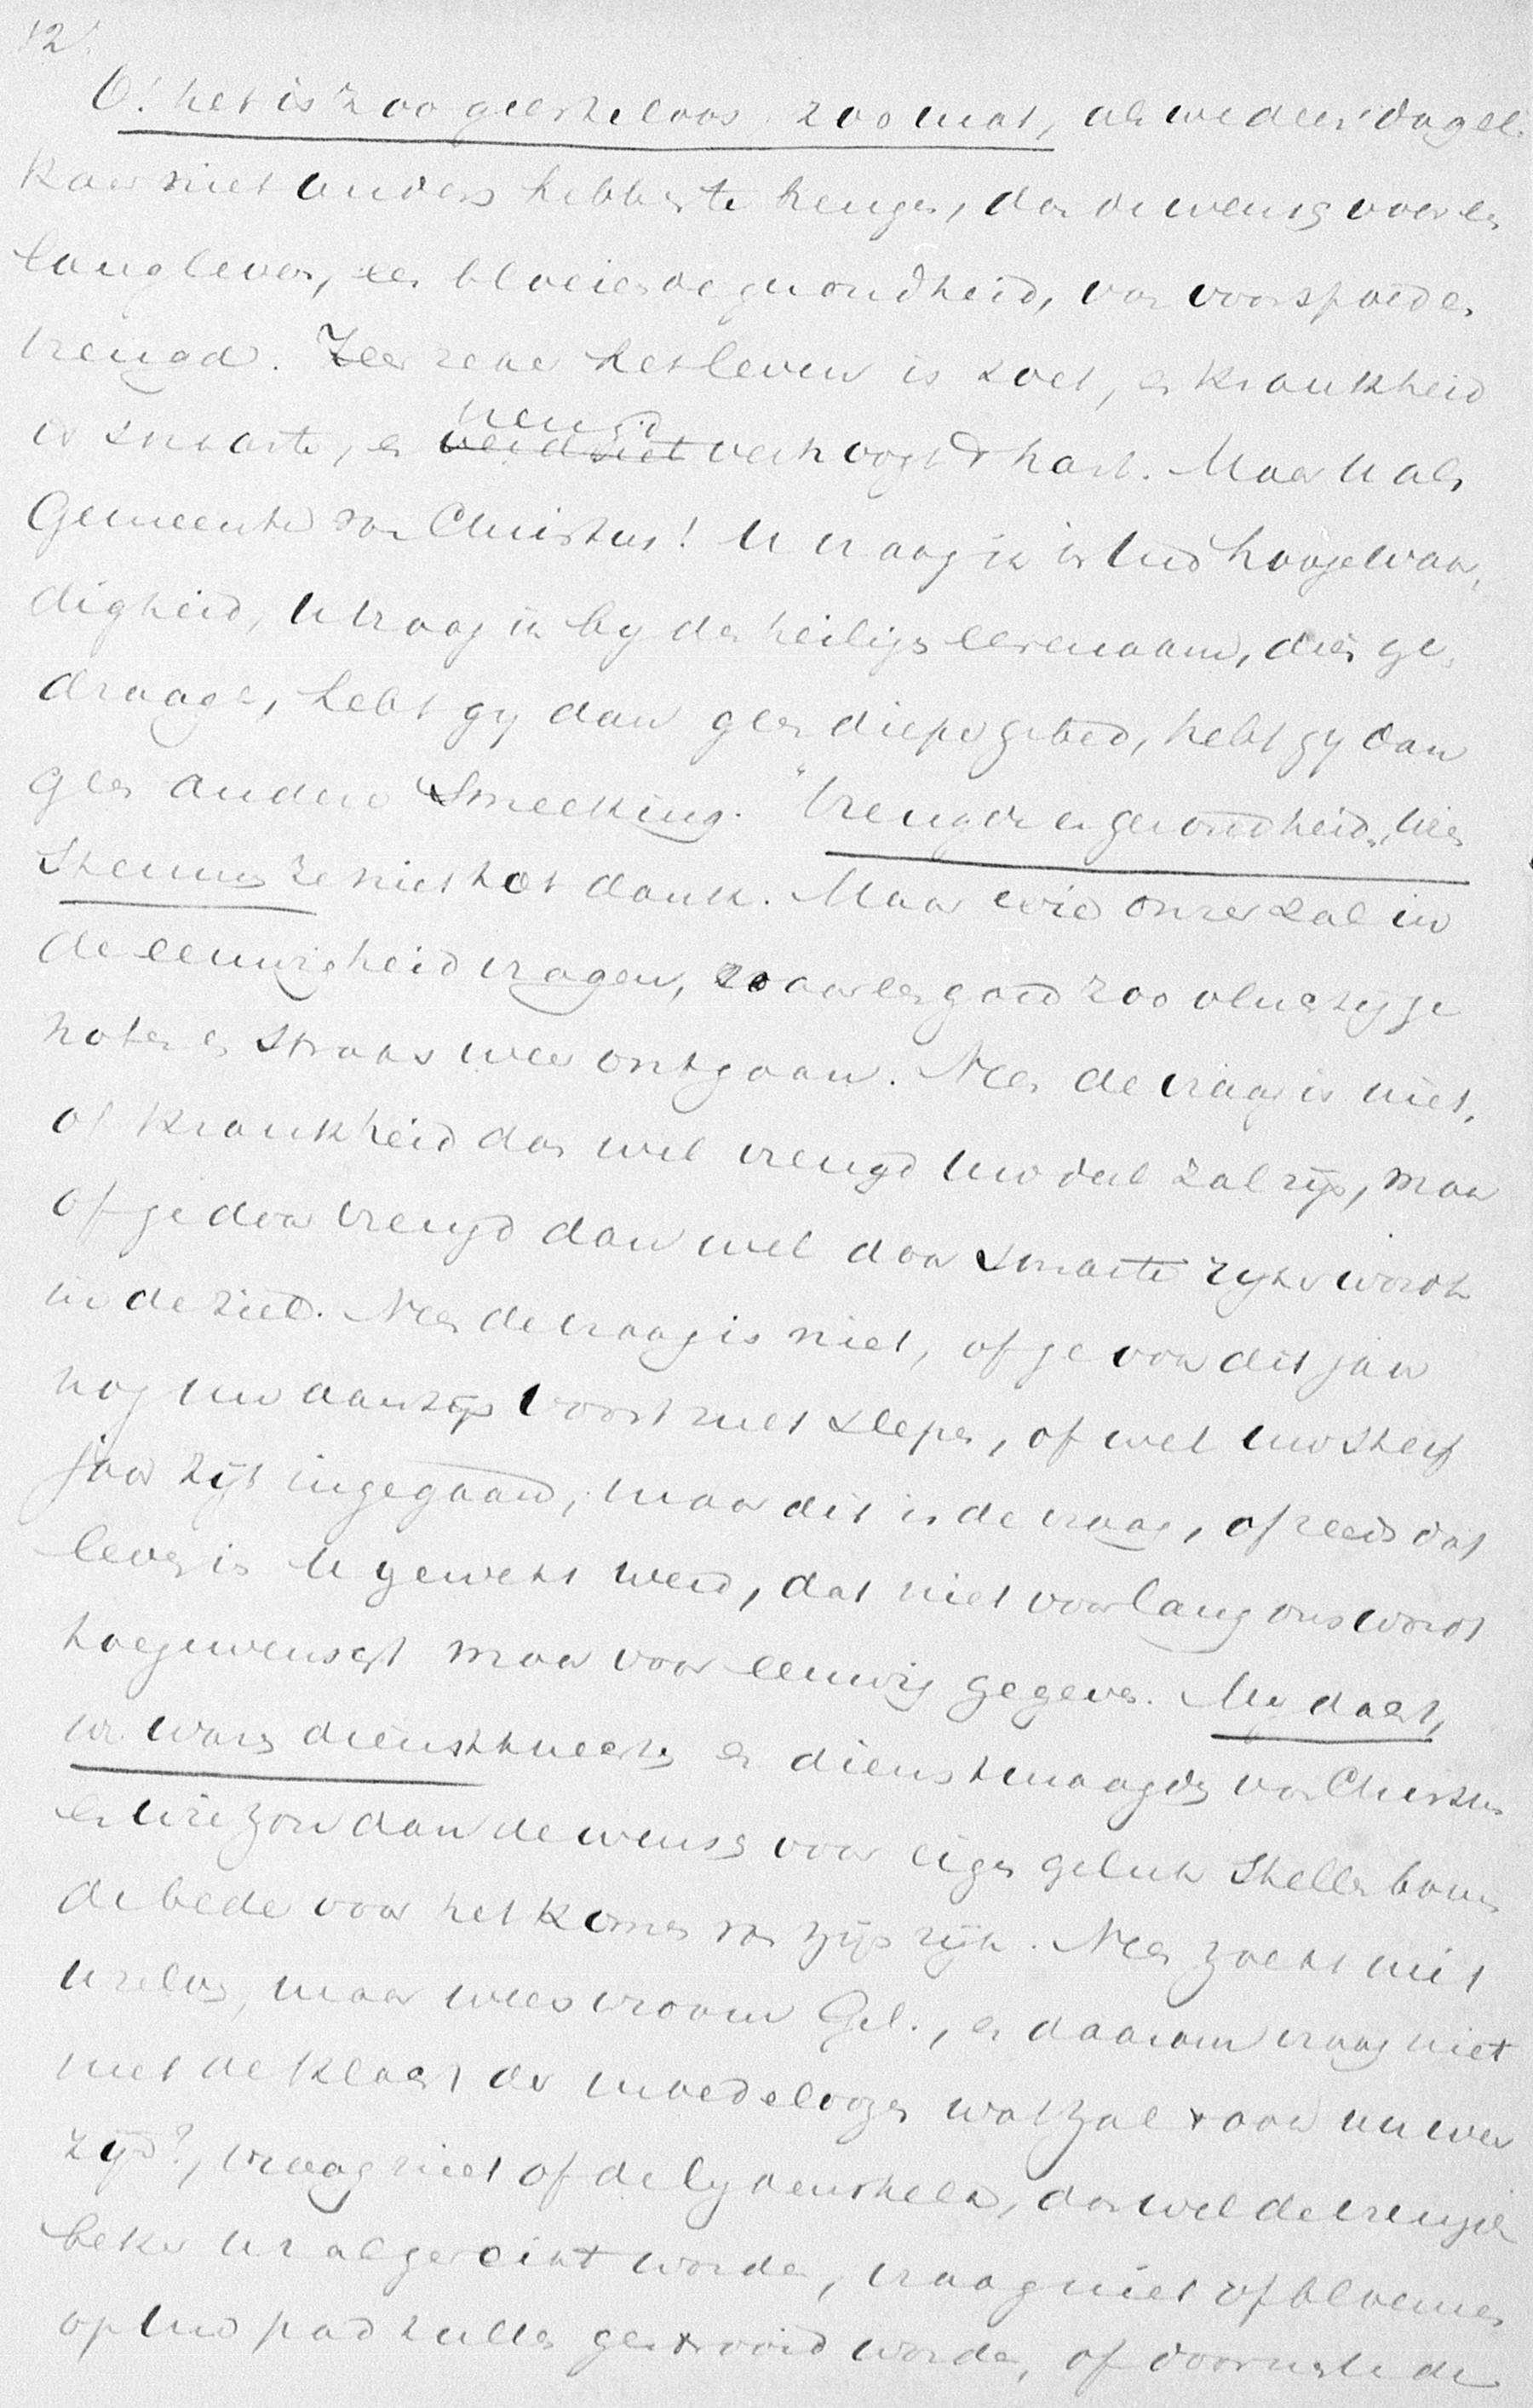 12.
O! het is zoo geesteloos zoo mat, als we deez' dag el-
kaar niet anders hebben te brengen, dan de wensch voor een
lang leven, een bloeiende gezondheid, van voorspoed en
vreugd. Zeer zeker het leven is zoet, en krankheid
is smarte, en verdriet vreugd verhoogt 't hart. Maar U als
Gemeente van Christus! U vraag ik in Uw hooge waar-
digheid, U vraag ik by den heiligen eerenaam, dien ge
draagt, hebt gy dan geen dieper gebed, hebt gy dan
geen andere smeeking. "Vreugde en gezondheid," wien
stemmen ze niet tot dank. Maar wie onzer zal in
de eeuwigheid vragen, naar een goed zoo vluchtig ge
noten en straks weer ontgaan. Neen de vraag is niet,
of krankheid dan wel vreugd uw deel zal zijn, maar
of ge door vreugd dan wel door smarte rijker wordt
in de ziel. Neen de vraag is niet, of ge ook dit jaar
nog uw aanzijn voort zult slepen, of wel uw sterf
jaar zijt ingegaan, maar dit is de vraag, of reeds dat
leven in U gewekt werd, dat niet voor lang ons wordt
toegewenscht maar voor eeuwig gegeven. My dacht,
we waren dienstknechten en dienstmaagden van Christus
en wie zou dan de wensch voor eigen geluk stellen boven
de bede voor het komen van zijn rijk. Neen zoekt niet
U zelven, maar wees vroom Gel., en daarom vraag niet
met de klacht der moedeloozen wat zal 't ook nu weer
zijn?, vraag niet of de lydenskelk, dan wel de vreugde
beker U zal gereikt worden, vraag niet of bloemen
op Uw pad zullen gestrooid worden, of doornen de